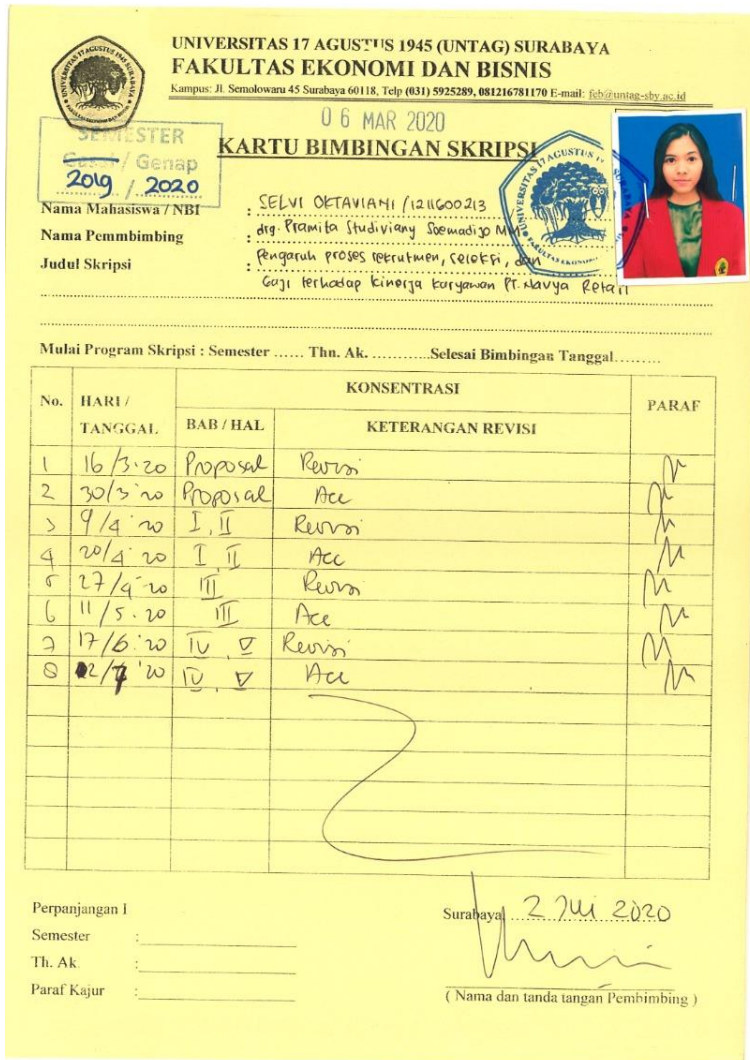 UNIVERSITAS 17 AGUSTUS 1945 (UNTAG) SURABAYA
FAKULTAS EKONOMI DAN BISNIS
Kampus: Jl. Semolowaru 45 Surabaya 60118, Telp (031) 5925289, 081216781170 E-mail: feb@untag-sby.ac.id
06 MAR 2020
SEMESTER
Gasal / Genap
2019 / 2020
KARTU BIMBINGAN SKRIPSI
Nama Mahasiswa / NBI : SELVI OKTAVIANI / 1211600213
Nama Pemmbimbing : drg. Pramita Studiviany Soemadijo MM.
Judul Skripsi : Pengaruh proses rekrutmen, seleksi, dan
Gaji terhadap kinerja karyawan PT. Navya Retail
Mulai Program Skripsi : Semester ...... Thn. Ak. ............Selesai Bimbingan Tanggal.........
No. HARI / TANGGAL KONSENTRASI PARAF
BAB / HAL KETERANGAN REVISI
1 16/3·20 Proposal Revisi
2 30/3·20 Proposal Acc
3 9/4·20 I, II Revisi
4 20/4·20 I, II Acc
5 27/4·20 III Revisi
6 11/5·20 III Acc
7 17/6·20 IV, V Revisi
8 2/7·20 IV, V Acc
Perpanjangan I
Semester :
Th. Ak. :
Paraf Kajur :
Surabaya, 2 Juli 2020
( Nama dan tanda tangan Pembimbing )